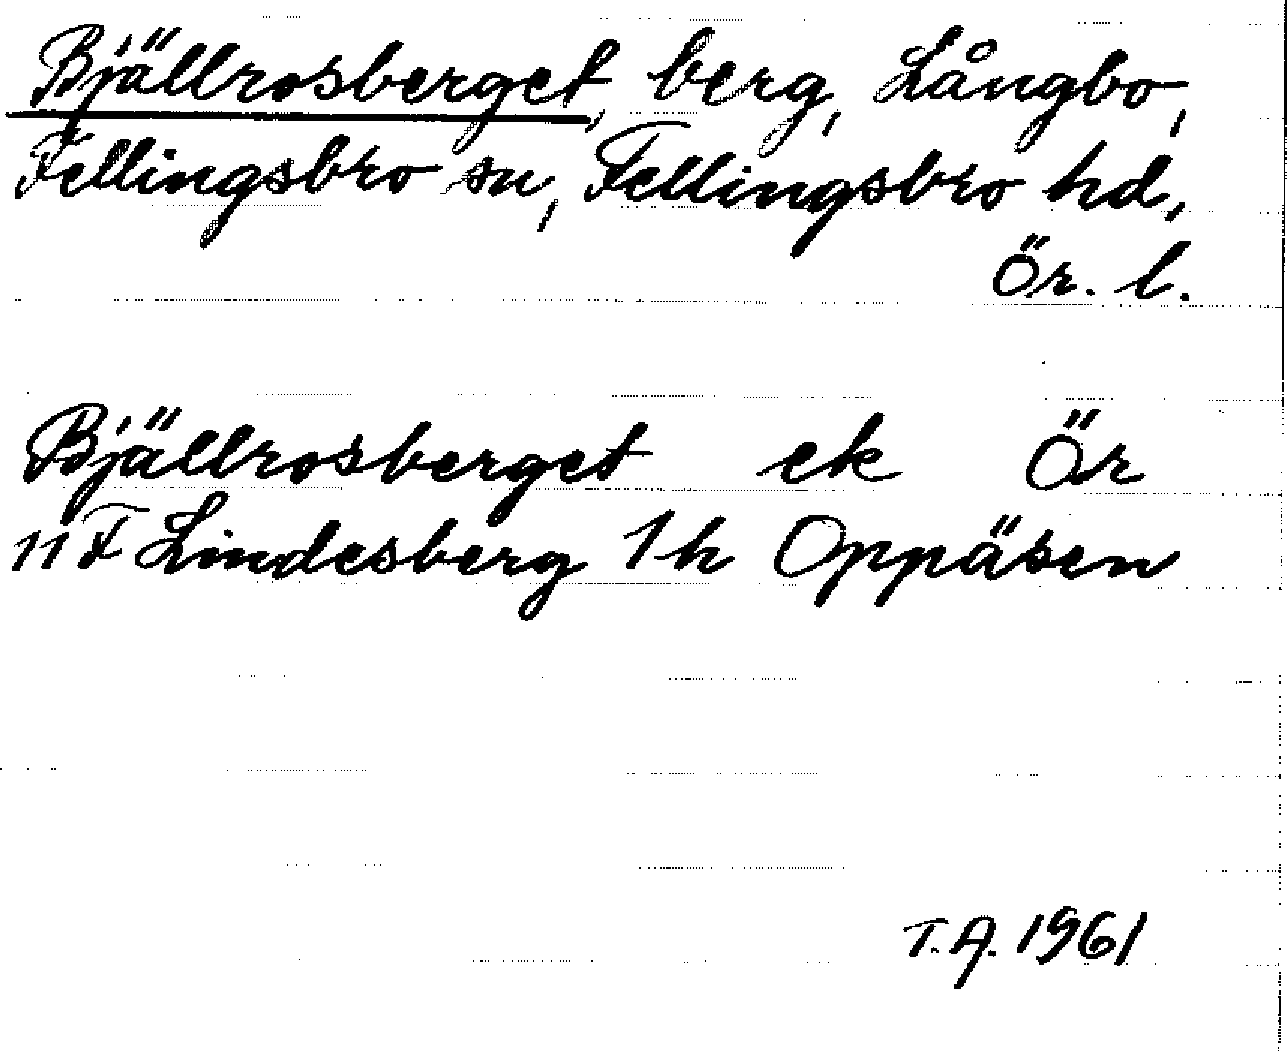 Bjällrosberget, berg, Långbo,
Fellingsbro sn, Fellingsbro hd,
Ör. l.
Bjällrosberget ek Ör
11F Lindesberg 1h Oppäsen
T.A. 1961